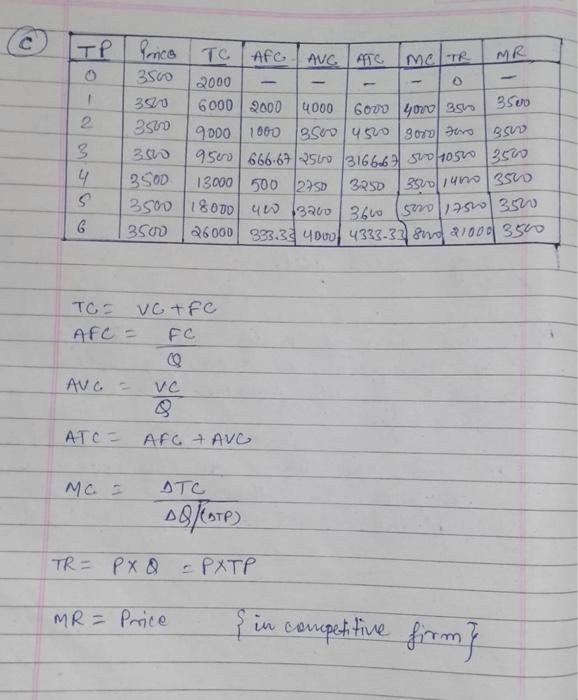 C
TP Price TC AFC AVC ATC MC TR MR
0 3500 2000 — — — — 0 —
1 3500 6000 2000 4000 6000 4000 3500 3500
2 3500 9000 1000 3500 4500 3000 7000 3500
3 3500 9500 666.67 2500 3166.67 500 10500 3500
4 3500 13000 500 2750 3250 3500 14000 3500
5 3500 18000 400 3200 3600 5000 17500 3500
6 3500 26000 333.33 4000 4333.33 8000 21000 3500
TC = VC + FC
AFC = FC
Q
AVC = VC
Q
ATC = AFC + AVC
MC = ΔTC
ΔQ/(ΔTP)
TR = P X Q = P X TP
MR = Price { in competitive firm }